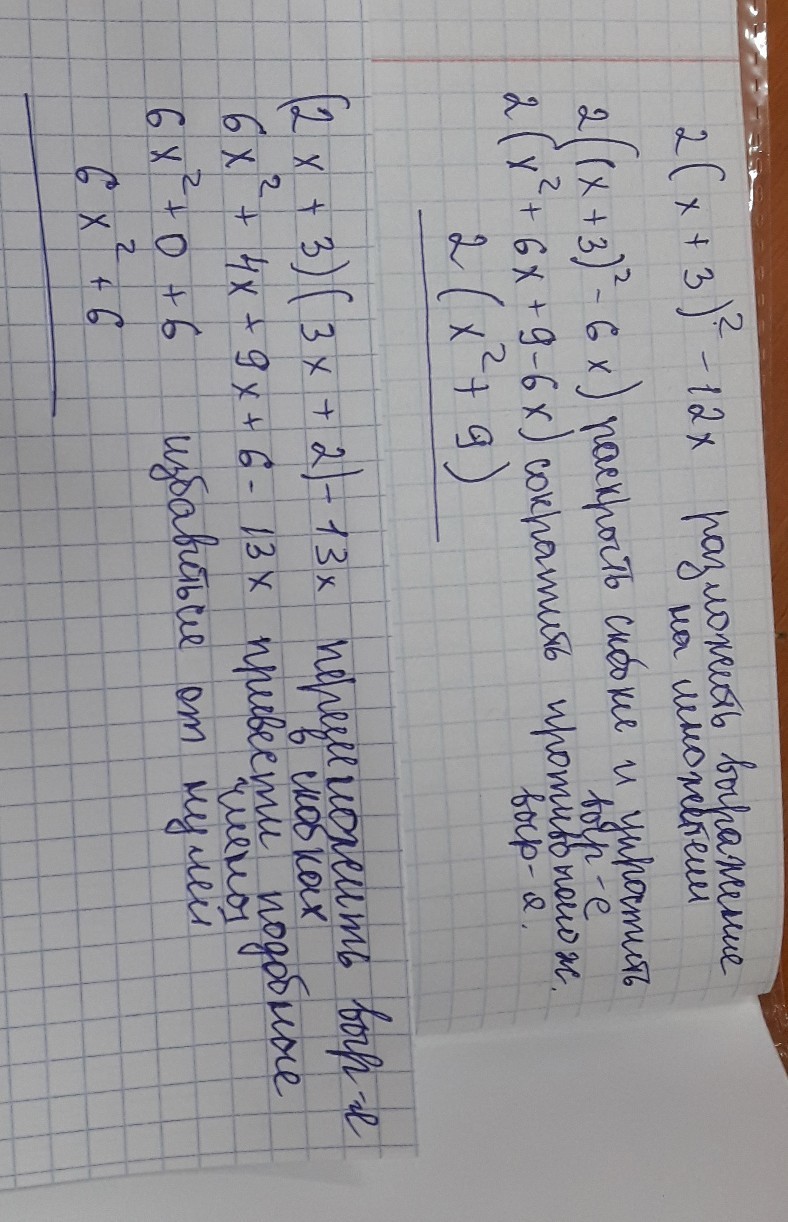 2(x+3)² - 12x разложить выражение
на множетели
2((x+3)² - 6x) раскрость скобки и упростить
выр-е
2(x² + 6x + 9 - 6x) сократить противополож.
выр-я.
2(x² + 9)
(2x + 3)(3x + 2) - 13x перемножить выр-я
в скобках
6x² + 4x + 9x + 6 - 13x привести подобные
члены
6x² + 0 + 6 избавиться от нулей
6x² + 6